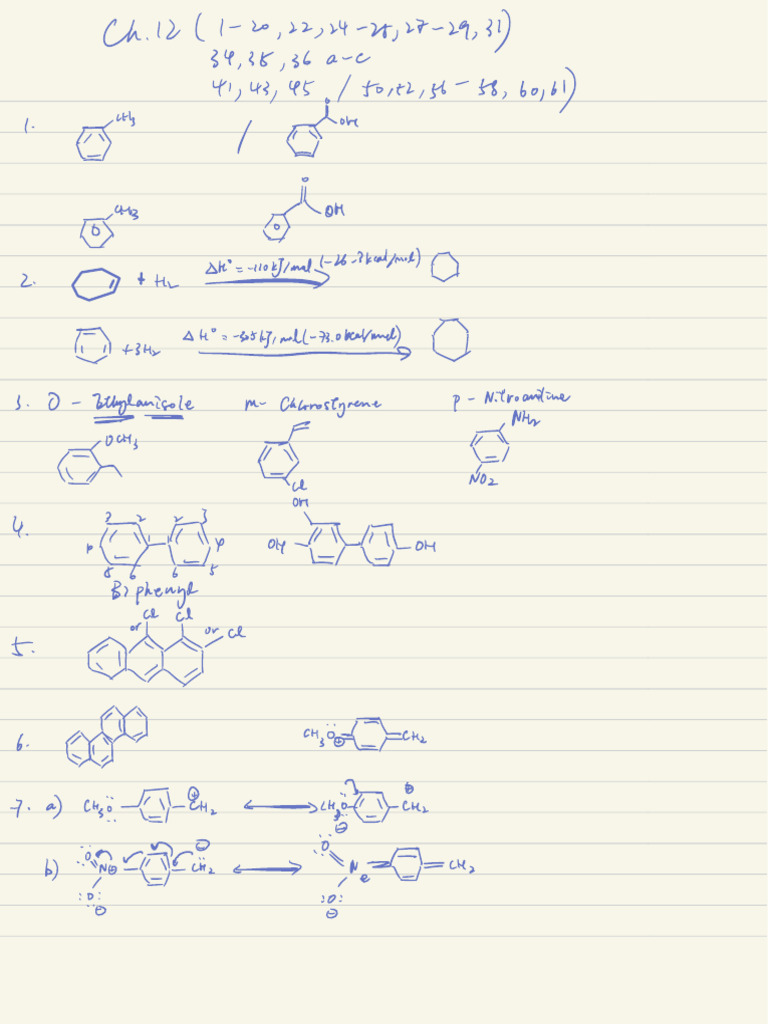 Ch.12 ( 1-20, 22, 24-25, 27-29, 31)
34, 35, 36 a-c
41, 43, 45 / 50, 52, 56-58, 60, 61)
1. CH3 / O OH
CH3 O OH
2. + H2 ΔH° = -110 kJ/mol (-26.3 kcal/mol)
+ 3H2 ΔH° = -305 kJ/mol (-73.0 kcal/mol)
3. O - Ethylanisole m- Chlorostyrene p - Nitroaniline
OCH3 Cl NH2 NO2
4. 3 2 2 3 4 1 1 4 5 6 6 5 OH OH OH
Biphenyl
5. or Cl Cl or Cl
6. CH3 O ⊕ CH2
7. a) CH3O ⊕ CH2 CH3O ⊕ CH2
b) O N ⊕ O ⊖ ⊖ CH2 ⊖ O N O ⊖ CH2